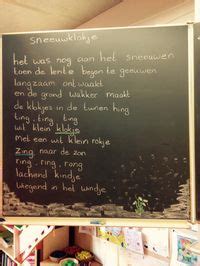 Sneeuwklokje
het was nog aan het sneeuwen
toen de lente begon te geeuwen
langzaam ontwaakt
en de grond wakker maakt
de klokjes in de tuinen hing
ting . ting ting
uit klein klokje
met een wit klein rokje
zing naar de zon
ring . ring . rong
lachend kindje
wiegend in het windje